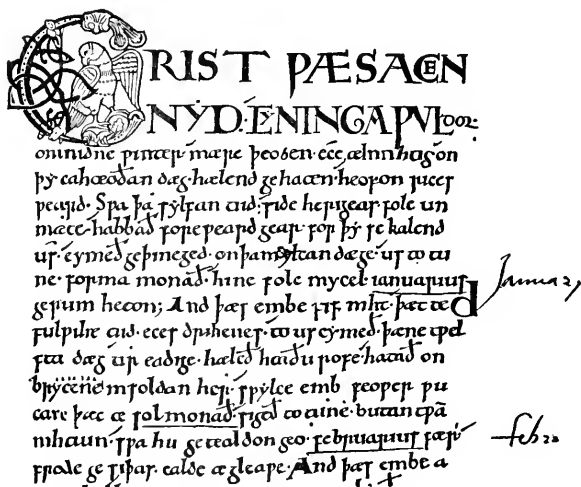 CRIST ǷÆS ACEN
NYD. CYNINGA ǷVLDOR.
on midne ƿinter mære þeoden. ece ælmihtig. on
þy eahteoðan dæg. hælend gehaten. heofon rices
ƿeard. Sƿa þa sylfan tiid. side herigeas folc un
mæte. habbað foreƿeard gear. for þy se kalend
us. cymeð geþincged. on þam ylcan dæge. us to tu
ne. forma monað. hine folc mycel. ianuarius
gerum heton; And þæs embe fif niht. þæt te
fulƿiht tiid. eces drihtnes. to us cymeð. þæne tƿel
fta dæg tir eadige. hæleð heaðu rofe. hatað on
brytene in foldan her. sƿylce emb feoƿer ƿu
can þæt te solmonað. sigeð to tune. butan tƿam
nihtum. sƿa hit getealdon geo. februarius fær.
frode ge siþas. ealde ægleaƿe. And þæs embe a
January
feb